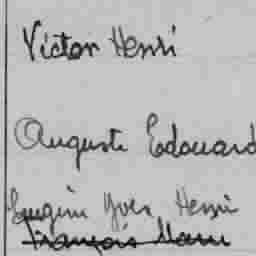 Victor Henri
Auguste Edouard
Eugène Yves Henri
François Marie